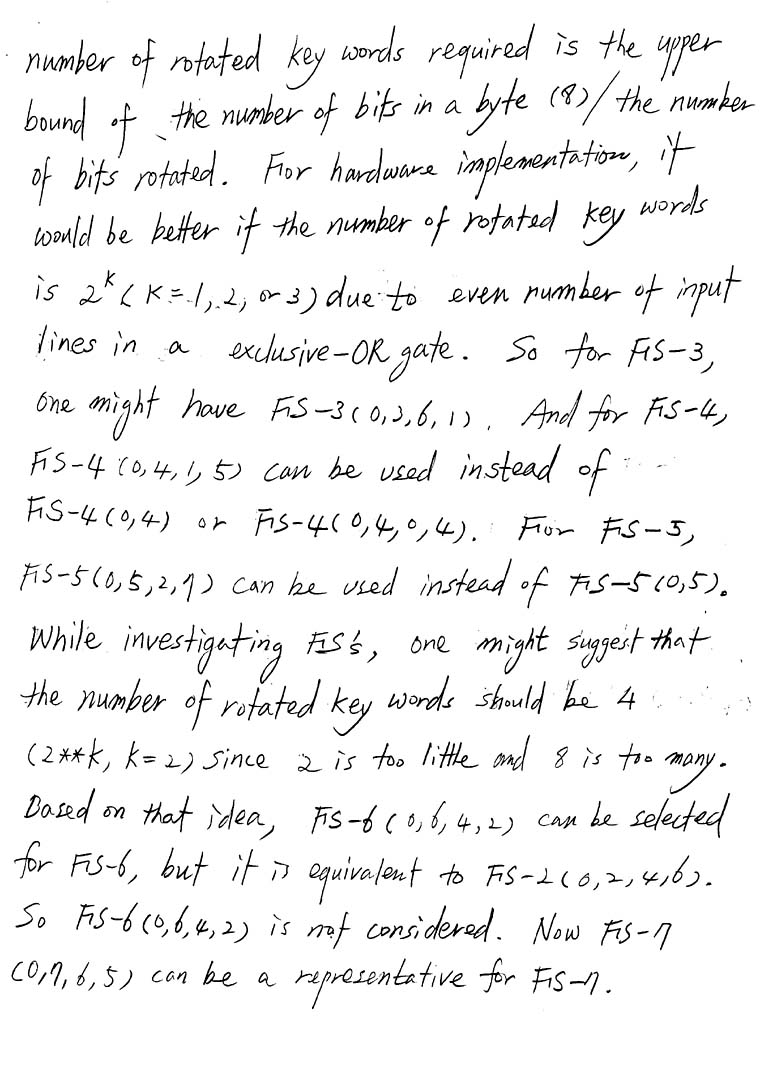 number of rotated key words required is the upper
bound of the number of bits in a byte (8)/the number
of bits rotated. For hardware implementation, it
would be better if the number of rotated key words
is 2^k (k=1, 2, or 3) due to even number of input
lines in a exclusive-OR gate. So for FIS-3,
one might have FIS-3(0,3,6,1). And for FIS-4,
FIS-4(0,4,1,5) can be used instead of
FIS-4(0,4) or FIS-4(0,4,0,4). For FIS-5,
FIS-5(0,5,2,7) can be used instead of FIS-5(0,5).
While investigating FIS's, one might suggest that
the number of rotated key words should be 4
(2**k, k=2) since 2 is too little and 8 is too many.
Based on that idea, FIS-6(0,6,4,2) can be selected
for FIS-6, but it is equivalent to FIS-2(0,2,4,6).
So FIS-6(0,6,4,2) is not considered. Now FIS-7
(0,7,6,5) can be a representative for FIS-7.